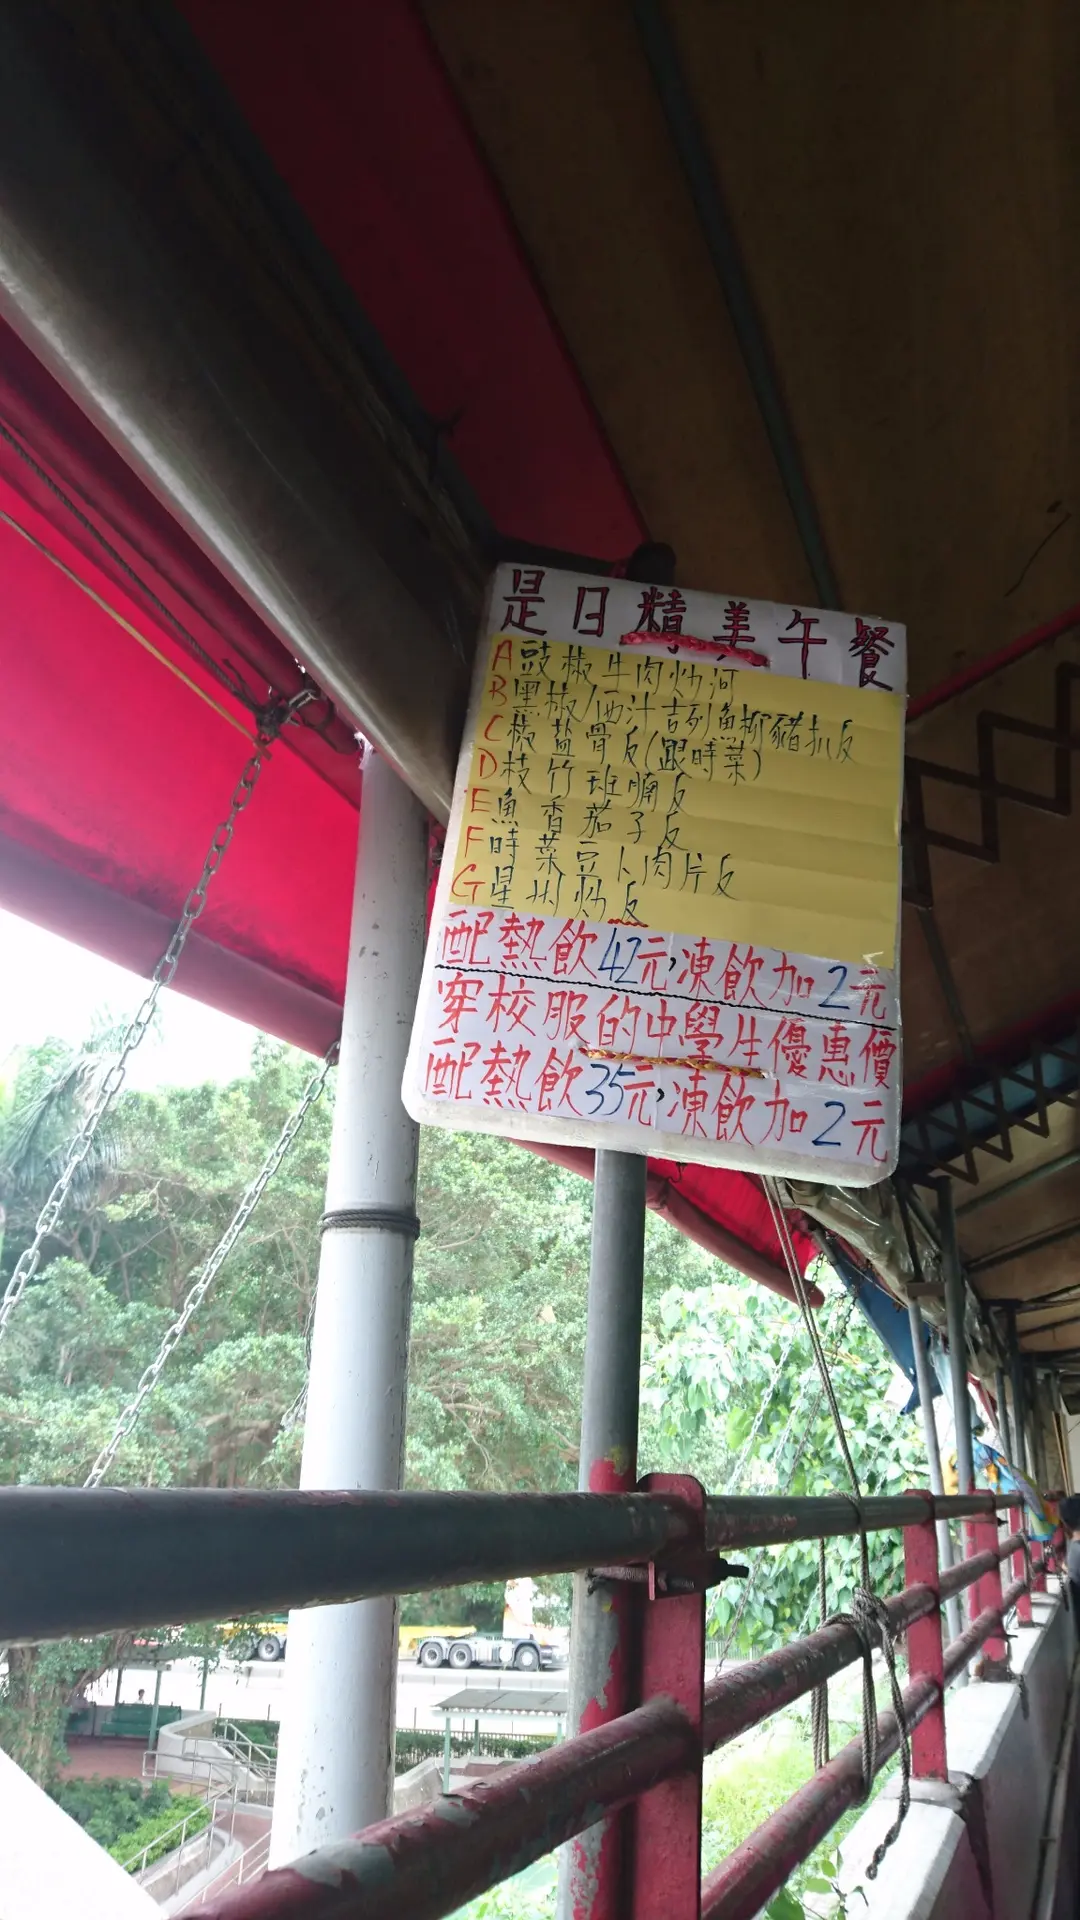 是日精美午餐
A豉椒牛肉炒河
B黑椒/西汁吉列魚柳豬扒反
C椒盐骨反(跟時菜)
D枝竹班腩反
E魚香茄子反
F時菜豆卜肉片反
G星州炒反
配熱飲42元,凍飲加2元
穿校服的中學生優惠價
配熱飲35元,凍飲加2元